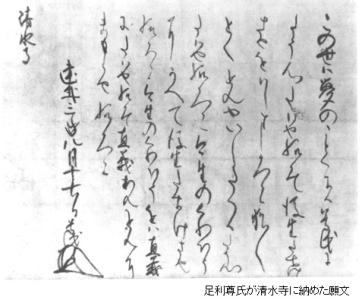 この世ハ夢のことくに候尊氏に
たう心たハせ給候て後生たすけ
させをハしまし候へく候猶
とくとんせいしたく候たう心
たハせ給候へく候今生のくわほう
にかへて後生たすけさせ
給候へく候今生のくわほうをハ直義
にたハせ給候て直義あんをんに
まもらせ給候へく候
建武三年八月十七日尊氏
清水寺
足利尊氏が清水寺に納めた願文